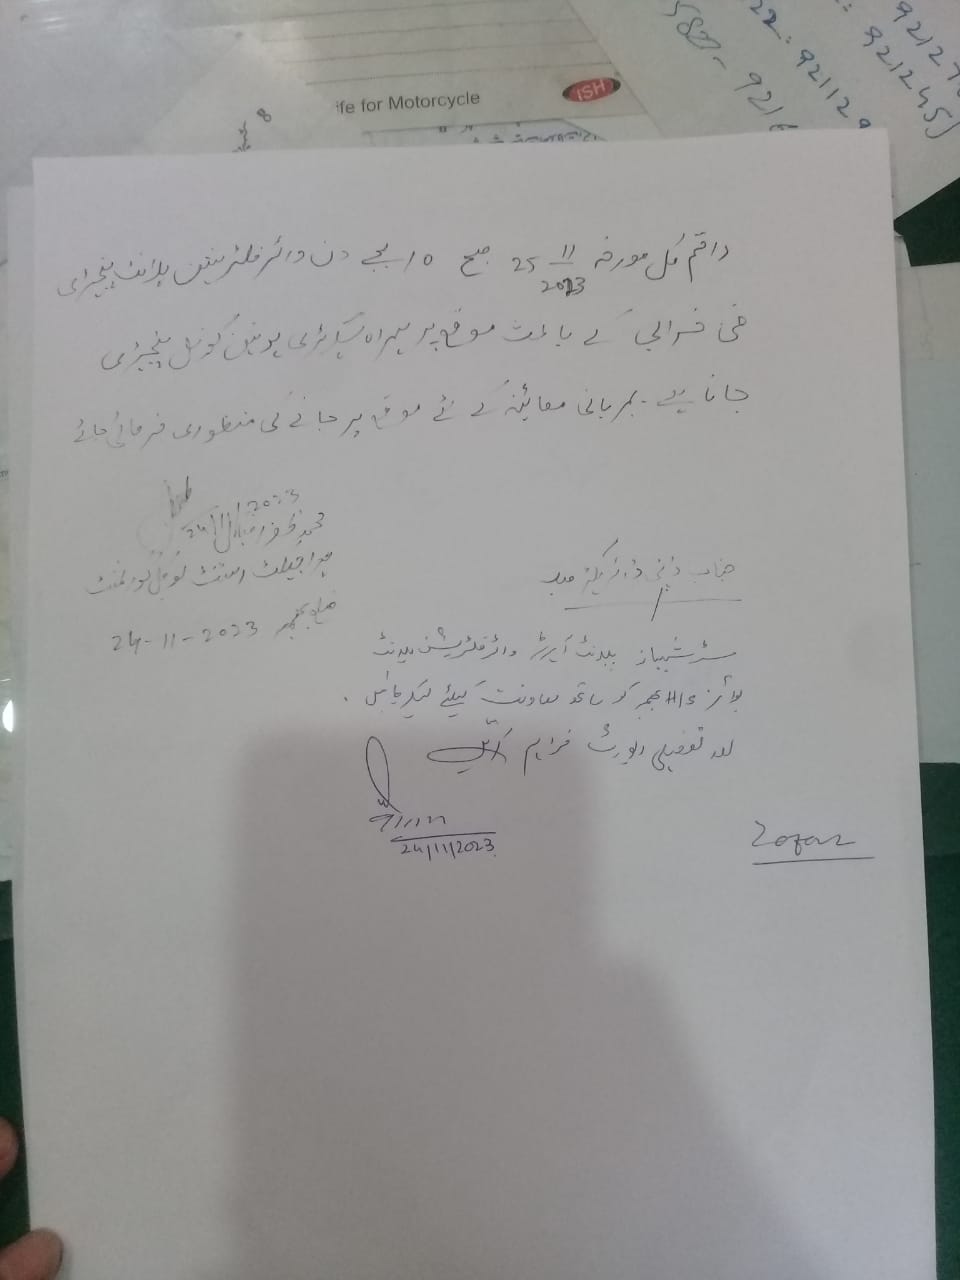 ife for Motorcycle
ISH
8
582 -
22: 921129
921245
راقم کل مورخہ 25 11 2023 صبح 10 بجے دن واٹر فلٹریشن پلانٹ پنجیڑی
فنی خرابی کے باعث موقع پر ہمراہ سیکرٹری یونین کونسل پنجیڑی
جانا ہے۔ مہربانی معائنہ کے لئے موقع پر جانے کی منظوری فرمائی جائے
24/11/2023
محمد ظفر اقبال
پراجیکٹ اسسٹنٹ لوکل گورنمنٹ
ضلع بھمبر 24-11-2023
جناب ڈپٹی ڈائریکٹر صاحب
مسٹر شہباز پلانٹ آپریٹر واٹر فلٹریشن پلانٹ
بوائز H/S بھمبر کو ساتھ معاونت کیلئے لیکر جائیں۔
اور تفصیلی رپورٹ فراہم کریں
24/11/2023
Zafar